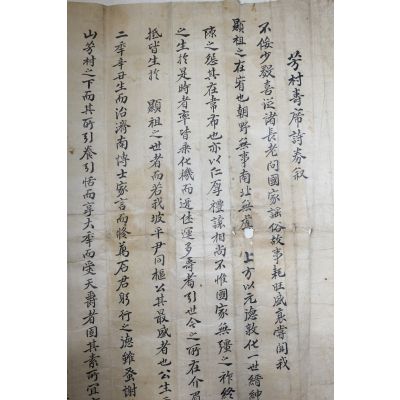 芳村壽席詩券叙
不佞少歲喜從諸長老問國家謠俗故事耗旺盛衰嘗聞我
顯祖之在宥也朝野無事南北無虞 上方以元德敦化一世縉紳
陳之怨其在韋布也亦以仁厚禮讓相尚不惟國家無疆之祚終
之生於是時者率皆乘化機而迓佳運多壽耈引世令之所在介眉
抵皆生於 顯祖之世者而若我坡平尹同樞公其最盛者也公生
二年辛丑生而治濟南博士家言而修萬石君躬行之德雖蚤謝
山芳村之下而其所引養引恬而享大年而受天爵者固其素所宜